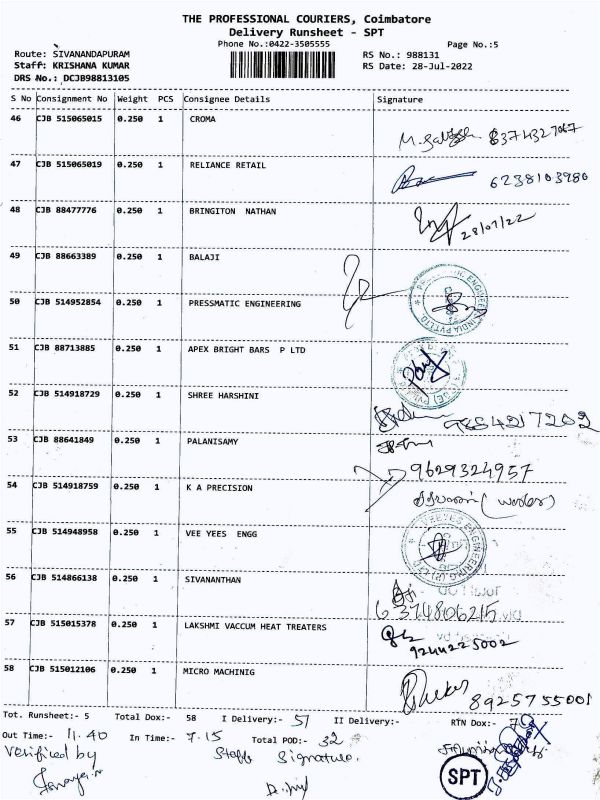 THE PROFESSIONAL COURIERS, Coimbatore
Delivery Runsheet - SPT
Phone No.:0422-3505555
Page No.:5
Route: SIVANANDAPURAM
RS No.: 988131
Staff: KRISHANA KUMAR
RS Date: 28-Jul-2022
DRS No.: DCJB98813105
S No Consignment No Weight PCS Consignee Details Signature
46 CJB 515065015 0.250 1 CROMA
8374327067
47 CJB 515065019 0.250 1 RELIANCE RETAIL
6238103980
48 CJB 88477776 0.250 1 BRINGITON NATHAN
28/07/22
49 CJB 88663389 0.250 1 BALAJI
50 CJB 514952854 0.250 1 PRESSMATIC ENGINEERING
51 CJB 88713885 0.250 1 APEX BRIGHT BARS P LTD
52 CJB 514918729 0.250 1 SHREE HARSHINI
53 CJB 88641849 0.250 1 PALANISAMY
9629324957
54 CJB 514918759 0.250 1 K A PRECISION
55 CJB 514948958 0.250 1 VEE YEES ENGG
56 CJB 514866138 0.250 1 SIVANANTHAN
6374806215
57 CJB 515015378 0.250 1 LAKSHMI VACCUM HEAT TREATERS
9244225002
58 CJB 515012106 0.250 1 MICRO MACHINIG
8925755001
Tot. Runsheet:- 5 Total Dox:- 58 I Delivery:- 51 II Delivery:- RTN Dox:- 7
Out Time:- 11.40 In Time:- 7.15 Total POD:- 32
Verified by Staff Signature.
SPT